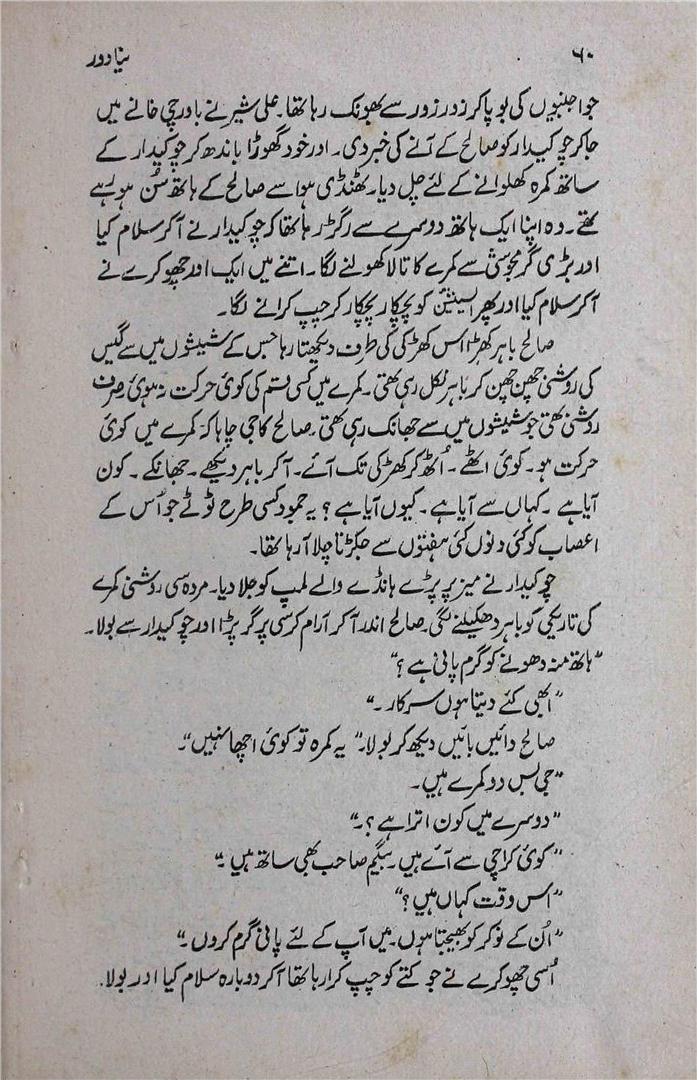 ۶۰ نیا دور
جو اجنبیوں کی بو پا کر زور زور سے بھونک رہا تھا۔ علی شیر نے باورچی خانے میں
جا کر چوکیدار کو صالح کے آنے کی خبر دی۔ اور خود گھوڑا باندھ کر چوکیدار کے
ساتھ کمرہ کھلوانے کے لئے چل دیا۔ ٹھنڈی ہوا سے صالح کے ہاتھ سُن ہو رہے
تھے۔ وہ اپنا ایک ہاتھ دوسرے سے رگڑ رہا تھا کہ چوکیدار نے آکر سلام کیا
اور بڑی گرمجوشی سے کمرے کا تالا کھولنے لگا۔ اتنے میں ایک اور چھوکرے نے
آکر سلام کیا اور پھر السیشن کو پچکار پچکار کر چپ کرانے لگا۔
صالح باہر کھڑا اس کھڑکی کی طرف دیکھتا رہا جس کے شیشوں میں سے گیس
کی روشنی چھن چھن کر باہر نکل رہی تھی۔ کمرے میں کسی قسم کی کوئی حرکت نہ ہوئی صرف
روشنی تھی جو شیشوں میں سے جھانک رہی تھی۔ صالح کا جی چاہا کہ کمرے میں کوئی
حرکت ہو۔ کوئی اٹھے۔ اُٹھ کر کھڑکی تک آئے۔ آکر باہر دیکھے۔ جھانکے۔ کون
آیا ہے۔ کہاں سے آیا ہے۔ کیوں آیا ہے؟ یہ جمود کسی طرح ٹوٹے جو اُس کے
اعصاب کو کئی دنوں کئی ہفتوں سے جکڑتا چلا آ رہا تھا۔
چوکیدار نے میز پر پڑے ہانڈے والے لمپ کو جلا دیا۔ مردہ سی روشنی کمرے
کی تاریکی کو باہر دھکیلنے لگی۔ صالح اندر آکر آرام کرسی پر گر پڑا اور چوکیدار سے بولا۔
"ہاتھ منہ دھونے کو گرم پانی ہے؟"
"ابھی کئے دیتا ہوں سرکار۔"
صالح دائیں بائیں دیکھ کر بولا۔ "یہ کمرہ تو کوئی اچھا نہیں"۔
"جی بس دو کمرے ہیں۔
"دوسرے میں کون اترا ہے؟۔"
"کوئی کراچی سے آئے ہیں۔ بیگم صاحب بھی ساتھ ہیں۔"
"اس وقت کہاں ہیں؟"
"اُن کے نوکر کو بھیجتا ہوں۔ میں آپ کے لئے پانی گرم کروں۔"
اُسی چھوکرے نے جو کتے کو چپ کرا رہا تھا آکر دوبارہ سلام کیا اور بولا۔